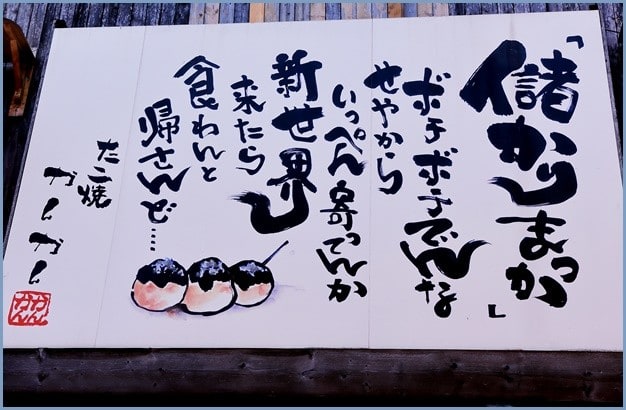 「儲かりまっか」
ボチボチでんな
せやから
いっぺん寄ってんか
新世界
来たら
食わんと
帰さんど……
たこ焼
かんかん
かんかん